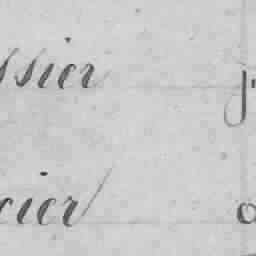 ssier j
cier o